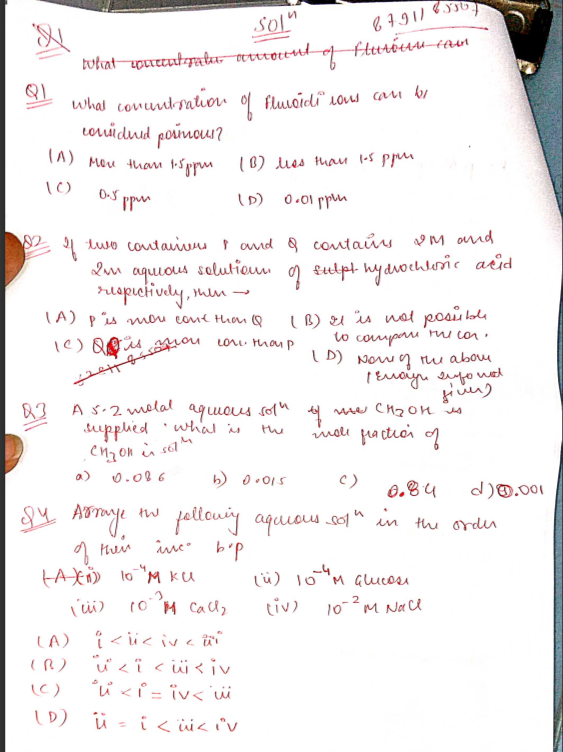 Q1
solⁿ
What concentration amount of fluroum can
Q1 What concentration of fluroidi ions can be
considered poisnous?
(A) More than 1.5 ppm (B) less than 1.5 ppm
(C) 0.5 ppm (D) 0.01 ppm
Q2 If two containers P and Q contains 2M and
2m aqueous solutions of sulph hydrochloric acid
respectively, then →
(A) P is more conc than Q (B) It is not possible
to compare the con.
(C) Q is more con. than P
(D) None of the above
(Enough info not
given)
Q3 A 5.2 molal aqueous solⁿ of me CH3OH is
supplied. what is the mole fraction of
CH3OH in solⁿ
a) 0.086 b) 0.015 c) 0.84 d) 0.001
Q4 Arrange the following aqueous solⁿ in the order
of their inc. b.p
(A) (i) 10⁻⁴ M KCl (ii) 10⁻⁴ M Glucose
(iii) 10⁻³ M CaCl2 (iv) 10⁻² M NaCl
(A) i < ii < iv < iii
(B) ii < i < iii < iv
(C) ii < i = iv < iii
(D) ii = i < iii < iv